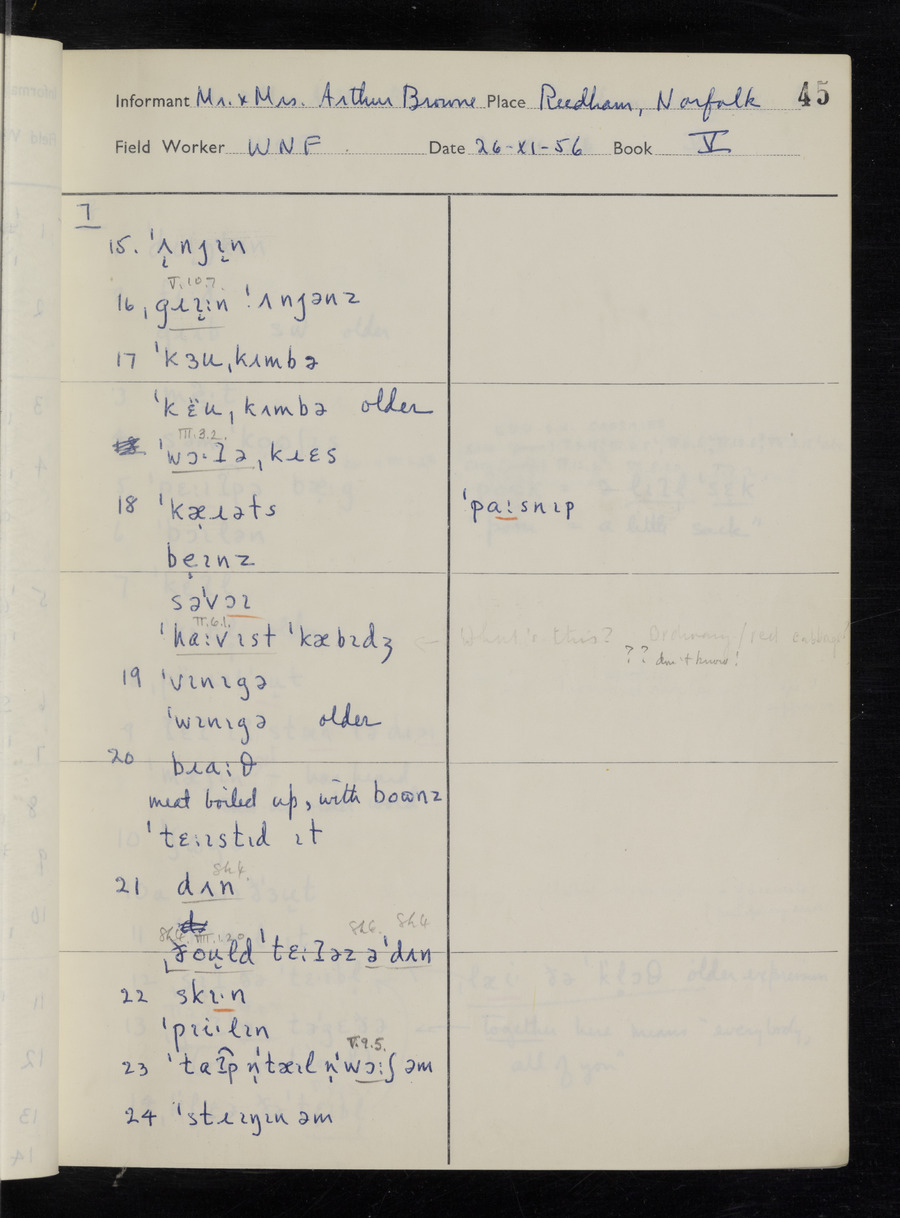 45
Informant Mr. & Mrs. Arthur Browne Place Reedham, Norfolk
Field Worker WNF Date 26-XI-56 Book V
7
15. ˈʌ̨nɟɪ̨n
V.10.7.
16 ˌgɹɪ̨ːn ˈʌnɟənz
17 ˈkɜuˌkʌmbə
ˈkëuˌkʌmbə older
III.3.2.
ˈwɔ·ʔəˌkɹɛs
18 ˈkæ̞ɹəts ˈpaːsnɪp
bẹɪnz
səˈvɔɪ
II.6.1.
ˈhaːvɪst ˈkæbɪdʒ ← What's this? Ordinary/red cabbage
?? don't know!
19 ˈvɪnɪgə
ˈwɪnɪgə older
20 bɹaːθ
meat boiled up, with boʊnz
ˈtɛːɪstɪd ɪt
Sh 4.
21 dʌn
Sh 4. VIII.1.20. Sh 6. Sh 4
ˌðould ˈtɛːʔəz əˈdʌn
22 skɪ·n
ˈpɪiˑlɪn
V.9.5.
23 ˈtaɪʔp n̩ˈtæɪl n̩ˈwɔːʃ əm
24 ˈstɛɪŋɪn əm